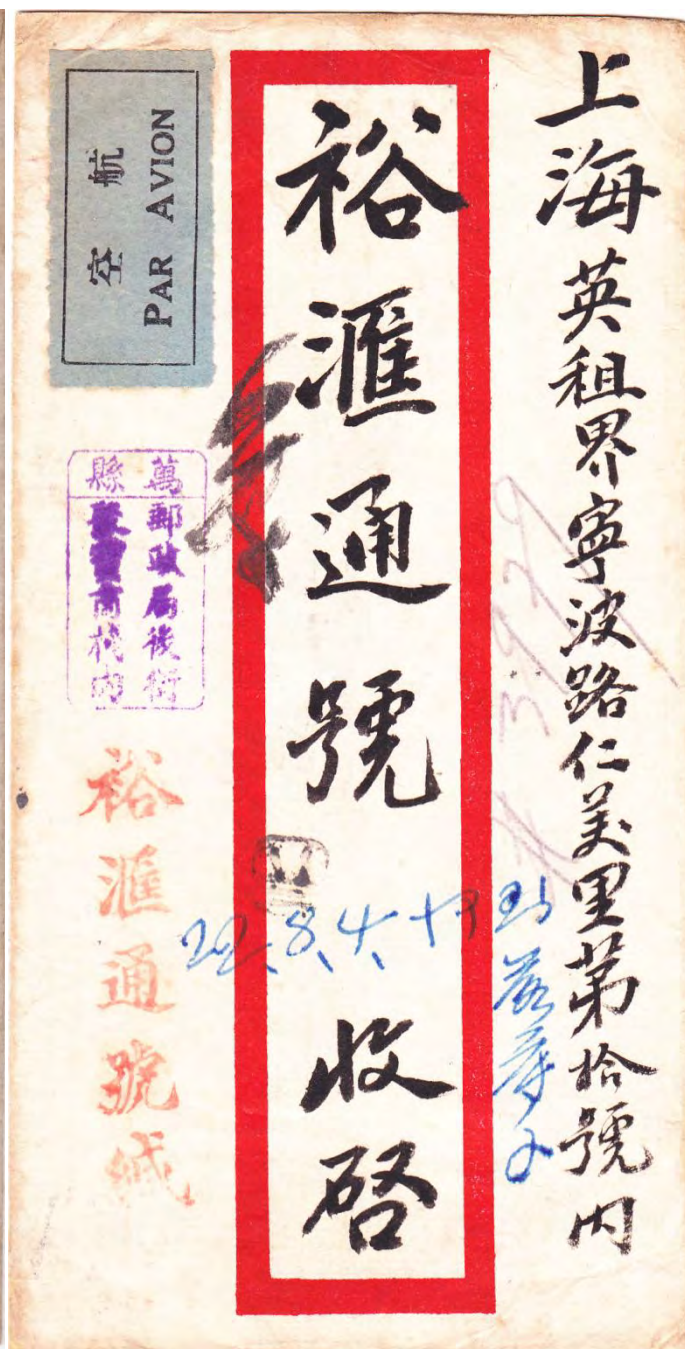 上海英租界寧波路仁美里第拾號内
裕滙通號 收啓
航空
PAR AVION
萬縣
郵政局後街
商栈内
裕滙通號緘
22、8、4、